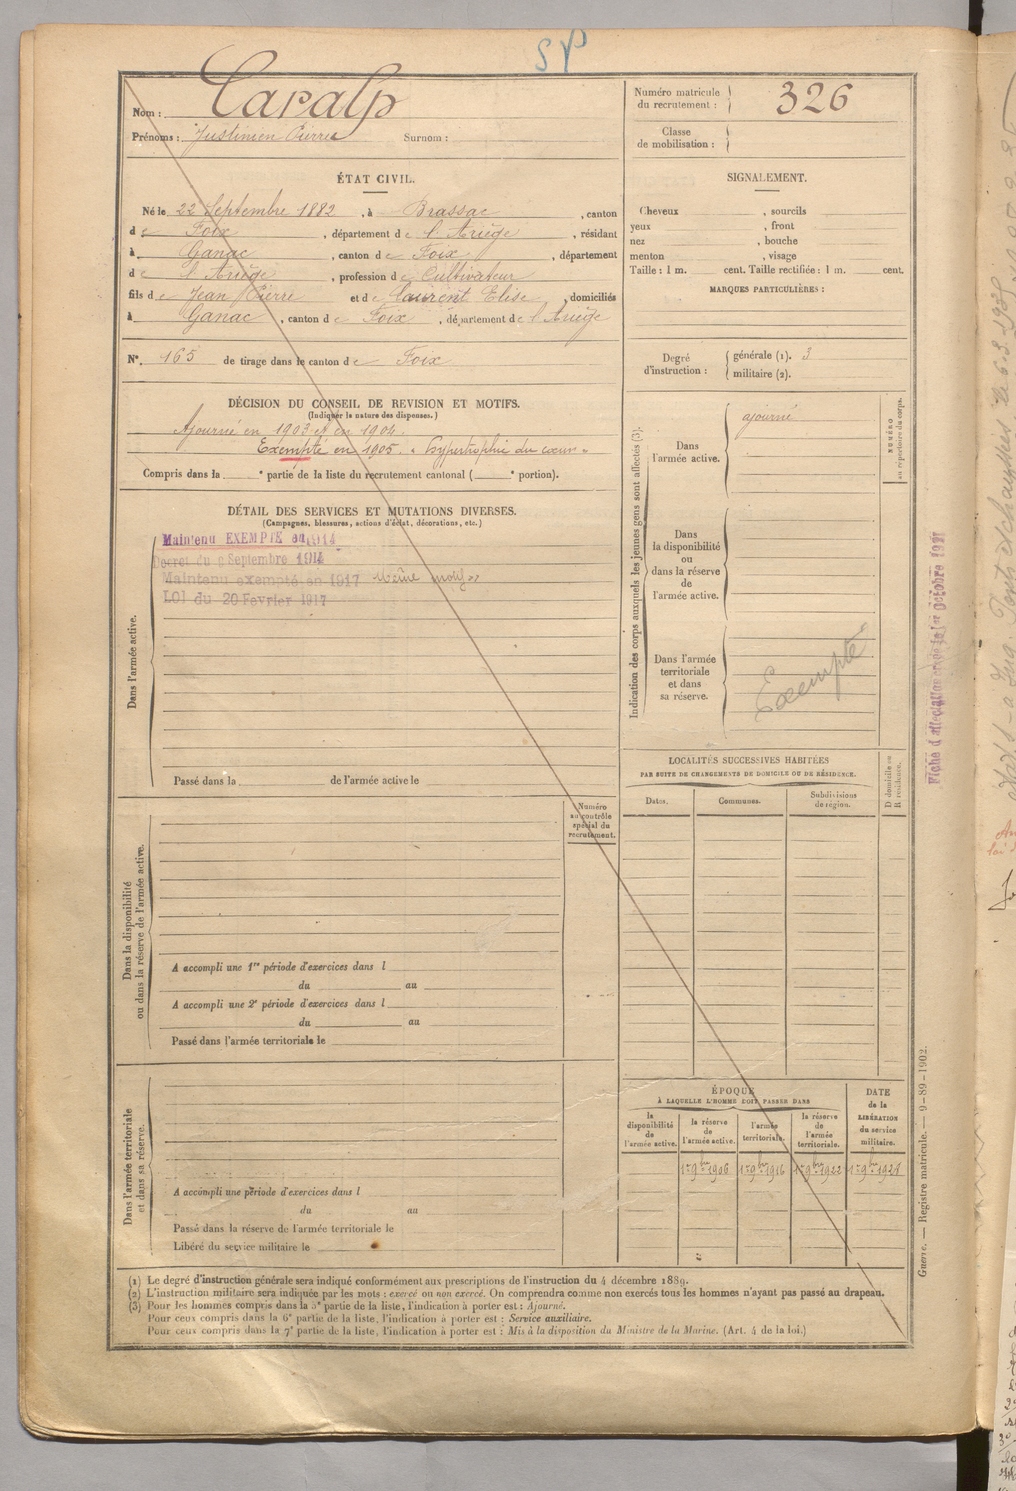 SP
Nom : Caralp
Prénoms : Justinien Pierre Surnom :
Numéro matricule du recrutement : 326
Classe de mobilisation :
ÉTAT CIVIL.
Né le 22 Septembre 1882, à Brassac, canton
de Foix, département de l'Ariège, résidant
à Ganac, canton de Foix, département
de l'Ariège, profession de Cultivateur
fils de Jean Pierre et de Laurent Elise, domiciliés
à Ganac, canton de Foix, département de l'Ariège
N° 165 de tirage dans le canton de Foix
SIGNALEMENT.
Cheveux , sourcils
yeux , front
nez , bouche
menton , visage
Taille : 1 m. cent. Taille rectifiée : 1 m. cent.
MARQUES PARTICULIÈRES :
Degré d'instruction : générale (1). 3
militaire (2).
DÉCISION DU CONSEIL DE REVISION ET MOTIFS.
(Indiquer la nature des dispenses.)
Ajourné en 1903 et en 1904.
Exempté en 1905. « hypertrophie du cœur »
Compris dans la e partie de la liste du recrutement cantonal ( e portion).
DÉTAIL DES SERVICES ET MUTATIONS DIVERSES.
(Campagnes, blessures, actions d'éclat, décorations, etc.)
Dans l'armée active.
Maintenu EXEMPTÉ en 1914
Décret du 9 Septembre 1914
Maintenu exempté en 1917 même motif »
LOI du 20 Février 1917
Passé dans la de l'armée active le
Indication des corps auxquels les jeunes gens sont affectés (3).
NUMÉRO au répertoire du corps.
Dans l'armée active.
ajourné
Dans la disponibilité ou dans la réserve de l'armée active.
Dans l'armée territoriale et dans sa réserve.
Exempté
Fiche d'affectation créée le 1er Octobre 1921
LOCALITÉS SUCCESSIVES HABITÉES
PAR SUITE DE CHANGEMENTS DE DOMICILE OU DE RÉSIDENCE.
Dates. Communes. Subdivisions de région. D domicile ou R résidence.
Dans la disponibilité ou dans la réserve de l'armée active.
Numéro au contrôle spécial du recrutement.
A accompli une 1re période d'exercices dans l
du au
A accompli une 2e période d'exercices dans l
du au
Passé dans l'armée territoriale le
Dans l'armée territoriale et dans sa réserve.
A accompli une période d'exercices dans l
du au
Passé dans la réserve de l'armée territoriale le
Libéré du service militaire le
ÉPOQUE
À LAQUELLE L'HOMME DOIT PASSER DANS
la disponibilité de l'armée active. la réserve de l'armée active. l'armée territoriale. la réserve de l'armée territoriale.
DATE de la LIBÉRATION du service militaire.
1er 9bre 1906 1er 9bre 1916 1er 9bre 1922 1er 9bre 1928
(1) Le degré d'instruction générale sera indiqué conformément aux prescriptions de l'instruction du 4 décembre 1889.
(2) L'instruction militaire sera indiquée par les mots : exercé ou non exercé. On comprendra comme non exercés tous les hommes n'ayant pas passé au drapeau.
(3) Pour les hommes compris dans la 5e partie de la liste, l'indication à porter est : Ajourné.
Pour ceux compris dans la 6e partie de la liste, l'indication à porter est : Service auxiliaire.
Pour ceux compris dans la 7e partie de la liste, l'indication à porter est : Mis à la disposition du Ministre de la Marine. (Art. 4 de la loi.)
Guerre. — Registre matricule. — 9-89-1902.